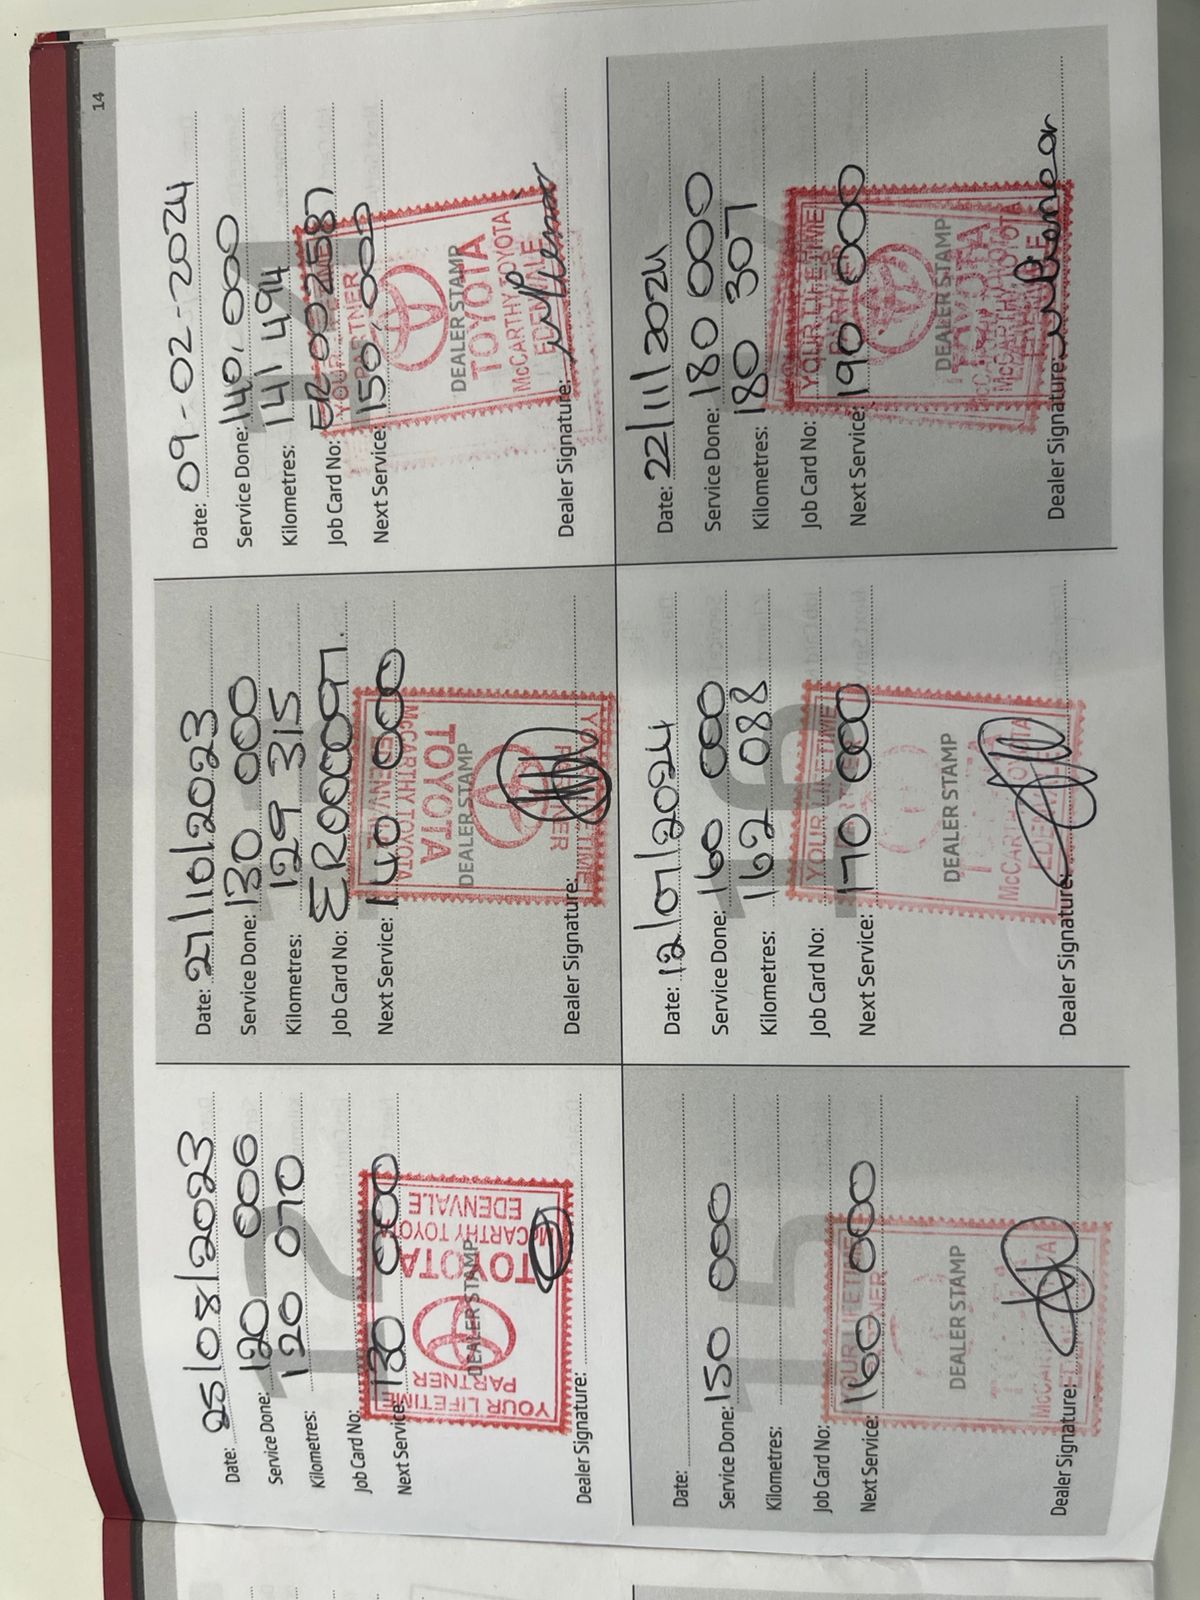 14
12
Date: 25/08/2023
Service Done: 120 000
Kilometres: 120 070
Job Card No:
Next Service: 130 000
DEALER STAMP
YOUR LIFETIME
PARTNER
TOYOTA
McCARTHY TOYOTA
EDENVALE
Dealer Signature:
Date: 27/10/2023
Service Done: 130 000
Kilometres: 129 315
Job Card No: ER000097.
Next Service: 140 000
DEALER STAMP
YOUR LIFETIME
PARTNER
TOYOTA
McCARTHY TOYOTA
EDENVALE
Dealer Signature:
Date: 09-02-2024
Service Done: 140,000
Kilometres: 141 494
Job Card No:
Next Service: 150,000
YOUR LIFETIME
PARTNER
DEALER STAMP
TOYOTA
McCARTHY TOYOTA
EDENVALE
Dealer Signature:
15
Date:
Service Done: 150 000
Kilometres:
Job Card No:
Next Service: 160 000
YOUR LIFETIME
PARTNER
DEALER STAMP
McCARTHY TOYOTA
EDENVALE
Dealer Signature:
16
Date: 12/07/2024
Service Done: 160 000
Kilometres: 162 088
Job Card No:
Next Service: 170 000
YOUR LIFETIME
PARTNER
DEALER STAMP
TOYOTA
McCARTHY TOYOTA
EDENVALE
Dealer Signature:
Date: 22/11/2024
Service Done: 180 000
Kilometres: 180 307
Job Card No:
Next Service: 190 000
YOUR LIFETIME
PARTNER
DEALER STAMP
TOYOTA
McCARTHY TOYOTA
EDENVALE
Dealer Signature: